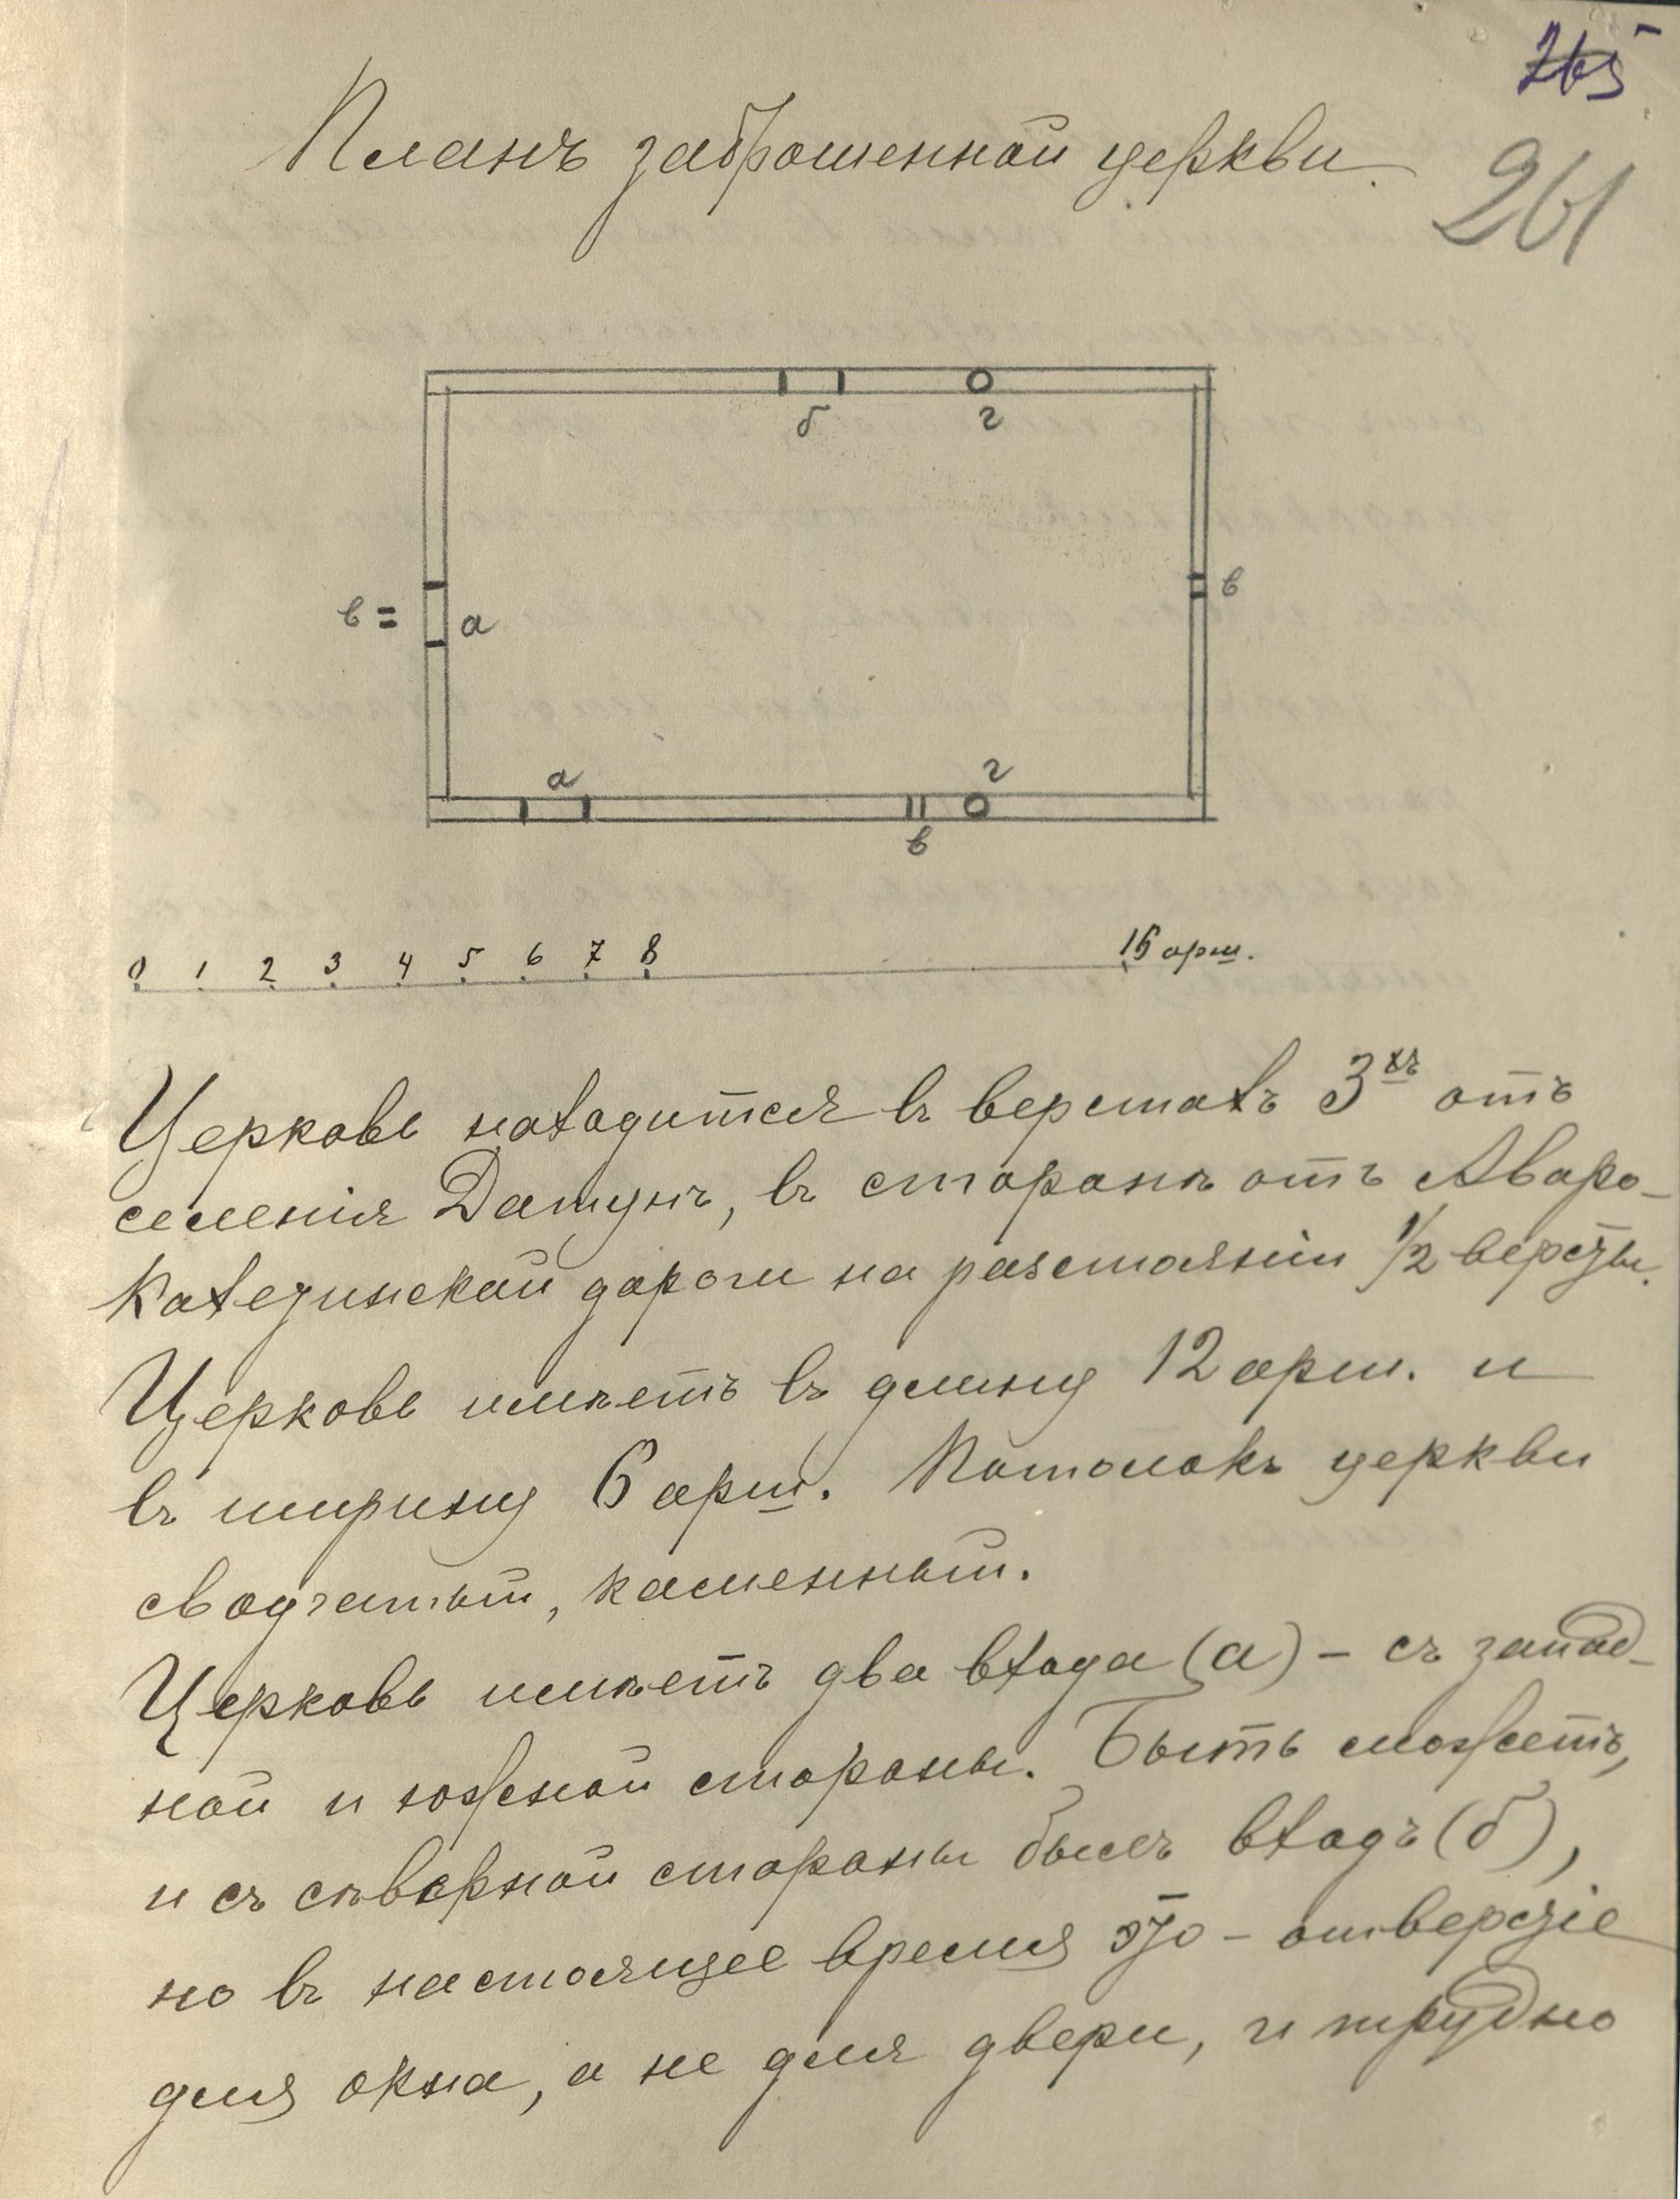 265
Планъ заброшенной церкви.
261
б
г
в =
а
в
а
г
в
0 1 2 3 4 5 6 7 8 16 арш.
Церковь находится въ верстахъ 3хъ отъ
селенія Датунъ, въ сторонѣ отъ Аваро-
Кахетинской дороги на разстояніи 1/2 версты.
Церковь имѣетъ въ длину 12 арш. и
въ ширину 6 арш. Потолокъ церкви
сводчатый, каменный.
Церковь имѣетъ два входа (а) – съ запад-
ной и южной стороны. Быть можетъ,
и съ сѣверной стороны былъ входъ (б),
но въ настоящее время это – отверстіе
для окна, а не для двери, и трудно